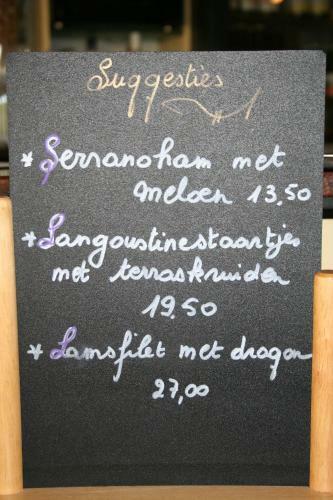 Suggesties
* Serranoham met
meloen 13.50
* Langoustinestaartjes
met terraskruiden
19.50
* Lamsfilet met dragon
27,00